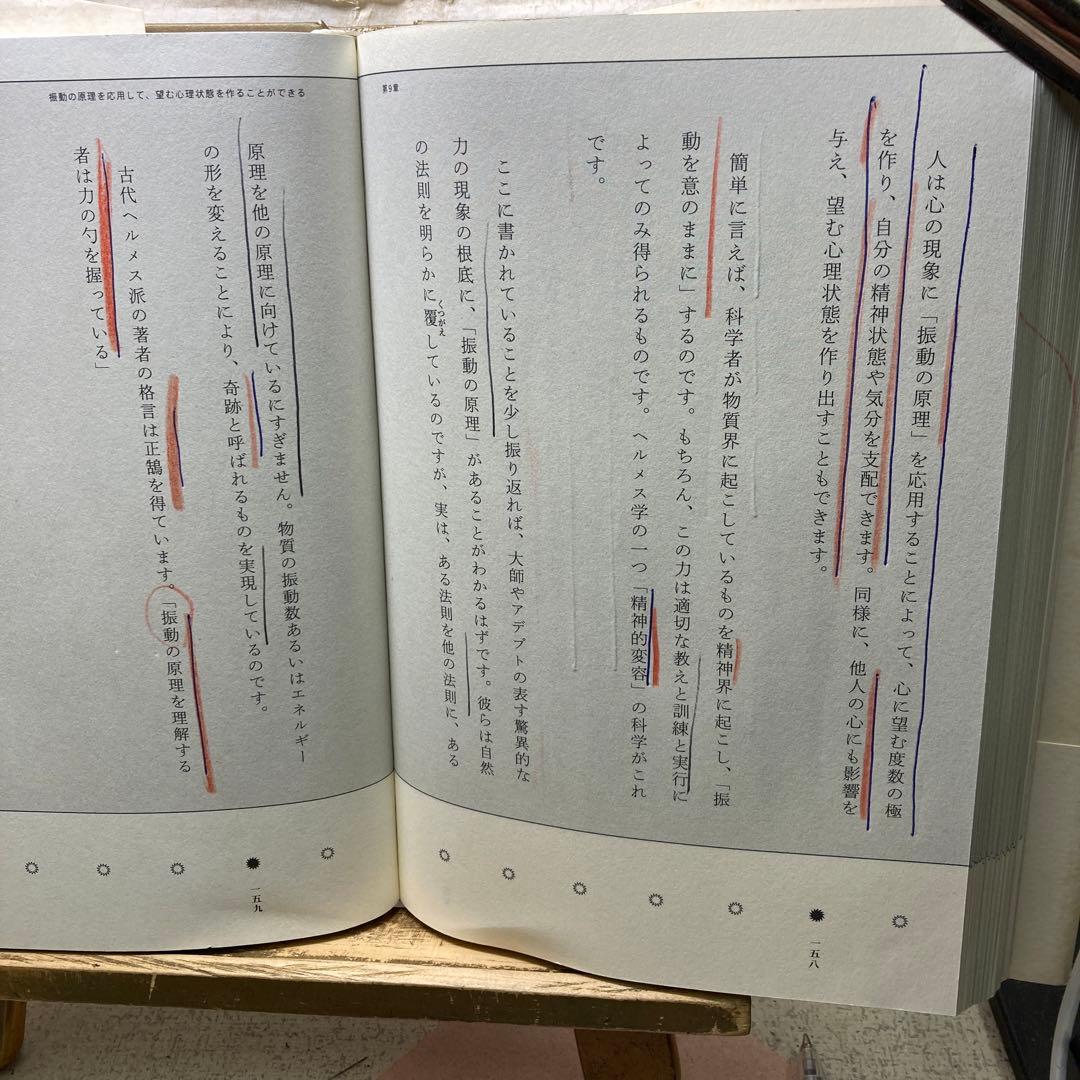 第9章
人は心の現象に「振動の原理」を応用することによって、心に望む度数の極
を作り、自分の精神状態や気分を支配できます。同様に、他人の心にも影響を
与え、望む心理状態を作り出すこともできます。
簡単に言えば、科学者が物質界に起こしているものを精神界に起こし、「振
動を意のままに」するのです。もちろん、この力は適切な教えと訓練と実行に
よってのみ得られるものです。ヘルメス学の一つ「精神的変容」の科学がこれ
です。
ここに書かれていることを少し振り返れば、大師やアデプトの表す驚異的な
力の現象の根底に、「振動の原理」があることがわかるはずです。彼らは自然
の法則を明らかに覆しているのですが、実は、ある法則を他の法則に、ある
くつがえ
一五八
振動の原理を応用して、望む心理状態を作ることができる
原理を他の原理に向けているにすぎません。物質の振動数あるいはエネルギー
の形を変えることにより、奇跡と呼ばれるものを実現しているのです。
古代ヘルメス派の著者の格言は正鵠を得ています。「振動の原理を理解する
者は力の勺を握っている」
一五九